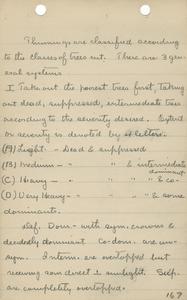 Thinnings are classified according
to the classes of trees cut. There are 3 gen-
eral systems
I Take out the poorest trees first, Taking
out dead, suppressed, intermediate trees
according to the severity desired.
or severity is denoted by letters.
(A) Light - Dead & suppressed
(B) Medium - " " " & intermediate
(C) Heavy - " " " & co-dominant
(D) Very Heavy - " " " & some
dominants.
Def. Dom. - with sym. crowns &
decidedly dominant Co-dom. are un-
sym. Interm. are overtopped but
receiving some direct sunlight. Sup.
are completely overtopped.
167